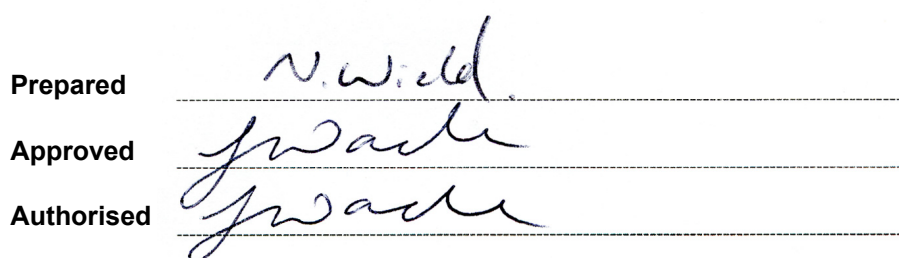 Prepared N. Wild.
Approved
Authorised